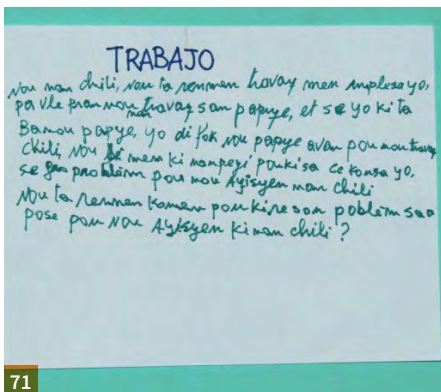 TRABAJO
Nou nan chili, nou ta renmen travay men anplwaye yo,
pa vle pran nou nan travay san papye, et se yo ki ta
Ba nou papye, yo di fòk nou papye avan pou nou travay
Chili, nou menm ki nan peyi pouki sa ce konsa yo,
se problèm pou nou Ayisyen nan chili
Nou ta renmen konnen poukirezon poblèm sa a
pose pou Nou Ayisyen ki nan chili?
71